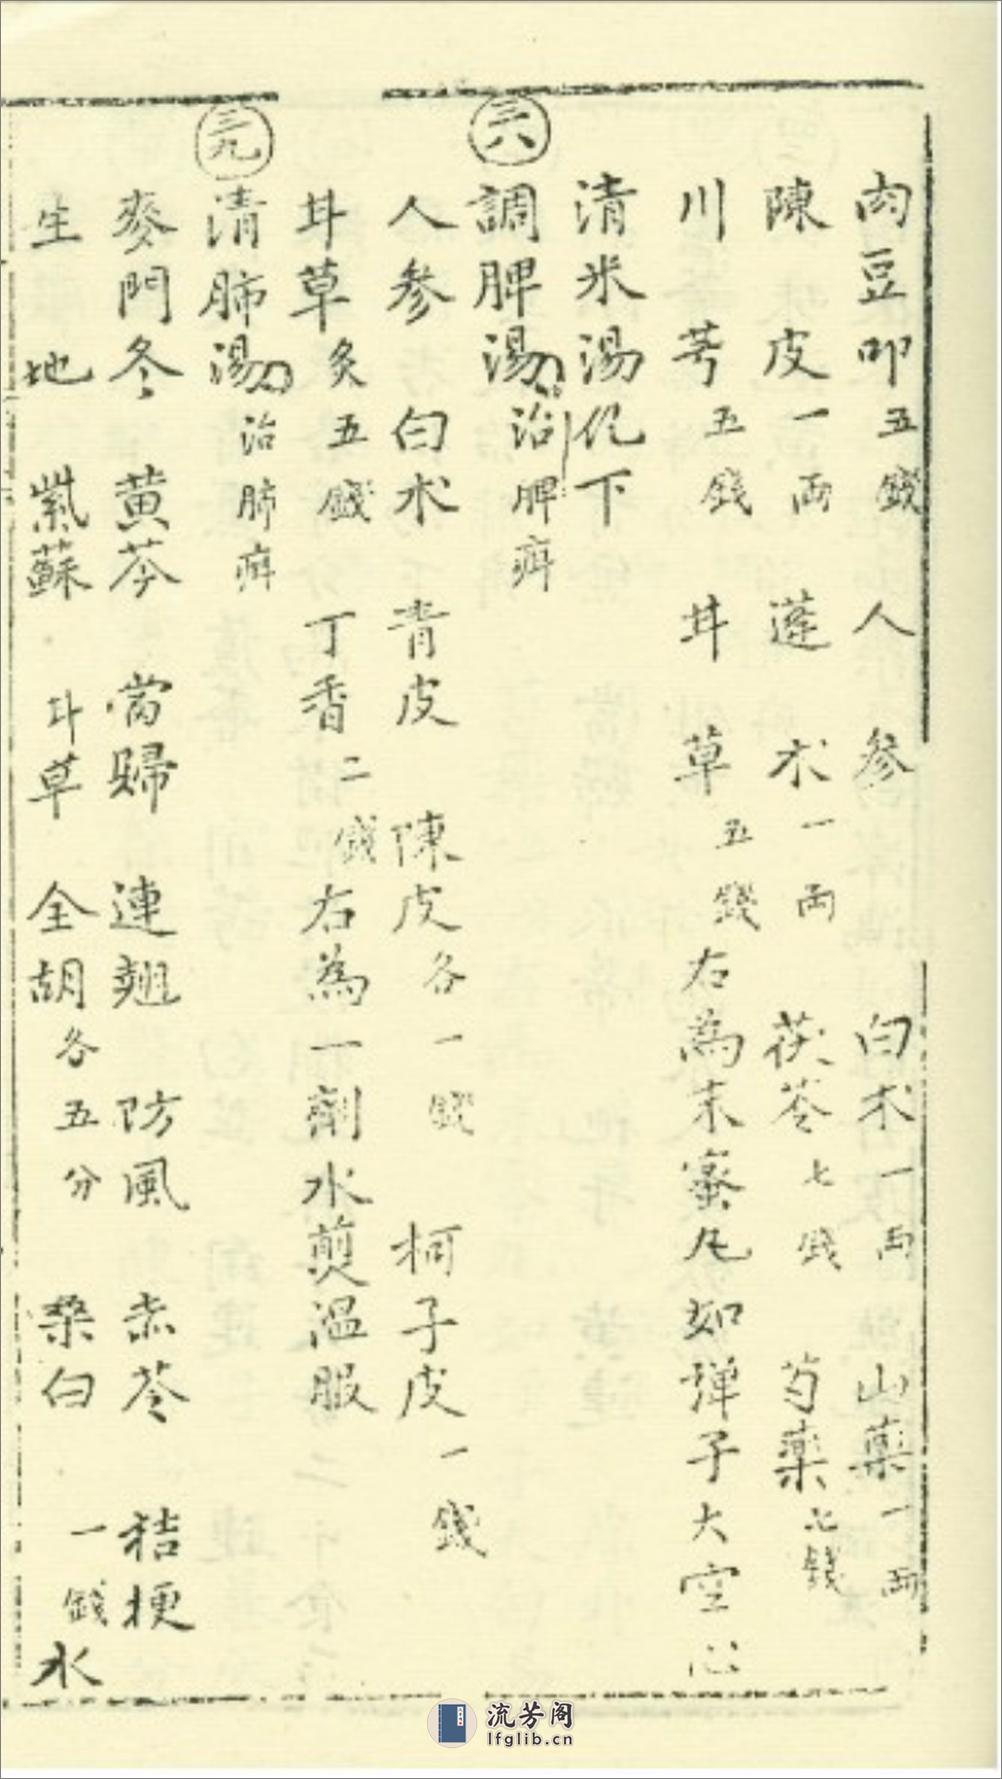 肉豆叩五錢 人參 白朮一兩 山藥一兩
陳皮一兩 蓬朮一兩 茯苓七錢 芍藥七錢
川芎五錢 甘草五錢 右為末蜜丸如彈子大空心
清米湯化下
三八 調脾湯 治脾疳
人參 白朮 青皮 陳皮各一錢 柯子皮一錢
甘草炙五錢 丁香二錢 右為一劑水煎溫服
三九 清肺湯 治肺疳
麥門冬 黃芩 當歸 連翹 防風 赤苓 桔梗
生地 紫蘇 甘草 全胡各五分 桑白一錢 水
流芳阁
lfglib.cn